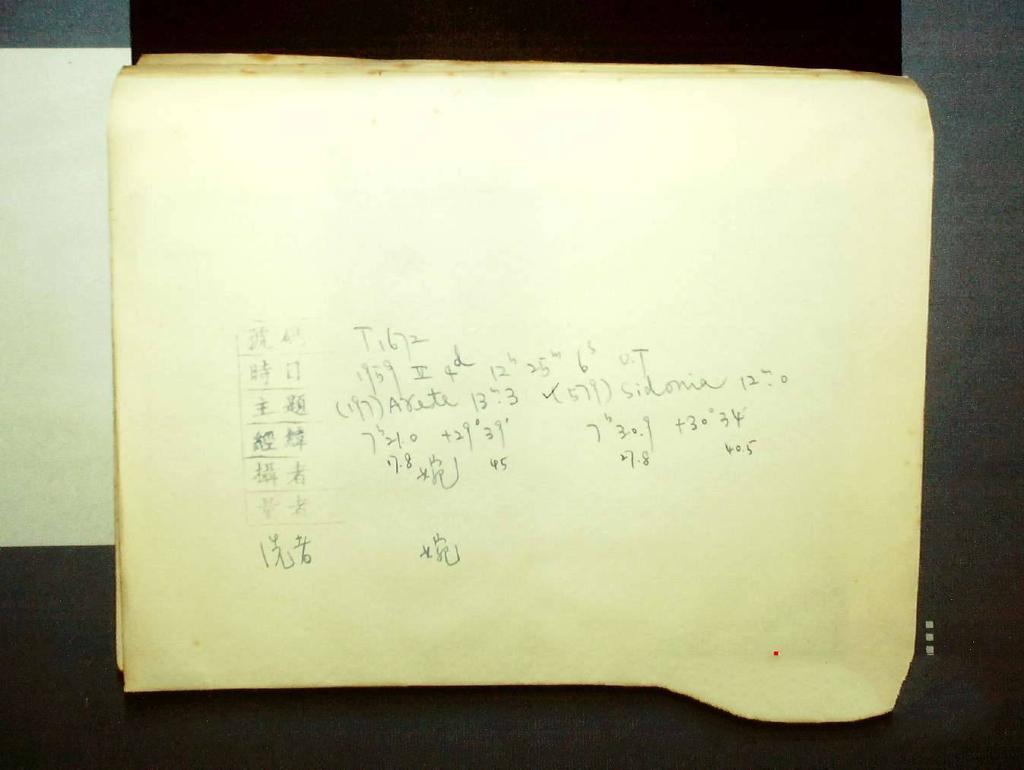 號碼 T1672
時日 1959 II 4d 12h 25m 6s U.T
主題 (197) Arete 13m.3 ✓(579) Sidonia 12m.0
經緯 7h21.0 +29°39' 7h30.9 +30°34'
17.8 45 27.8 40.5
攝者 婉
量者
洗者 婉